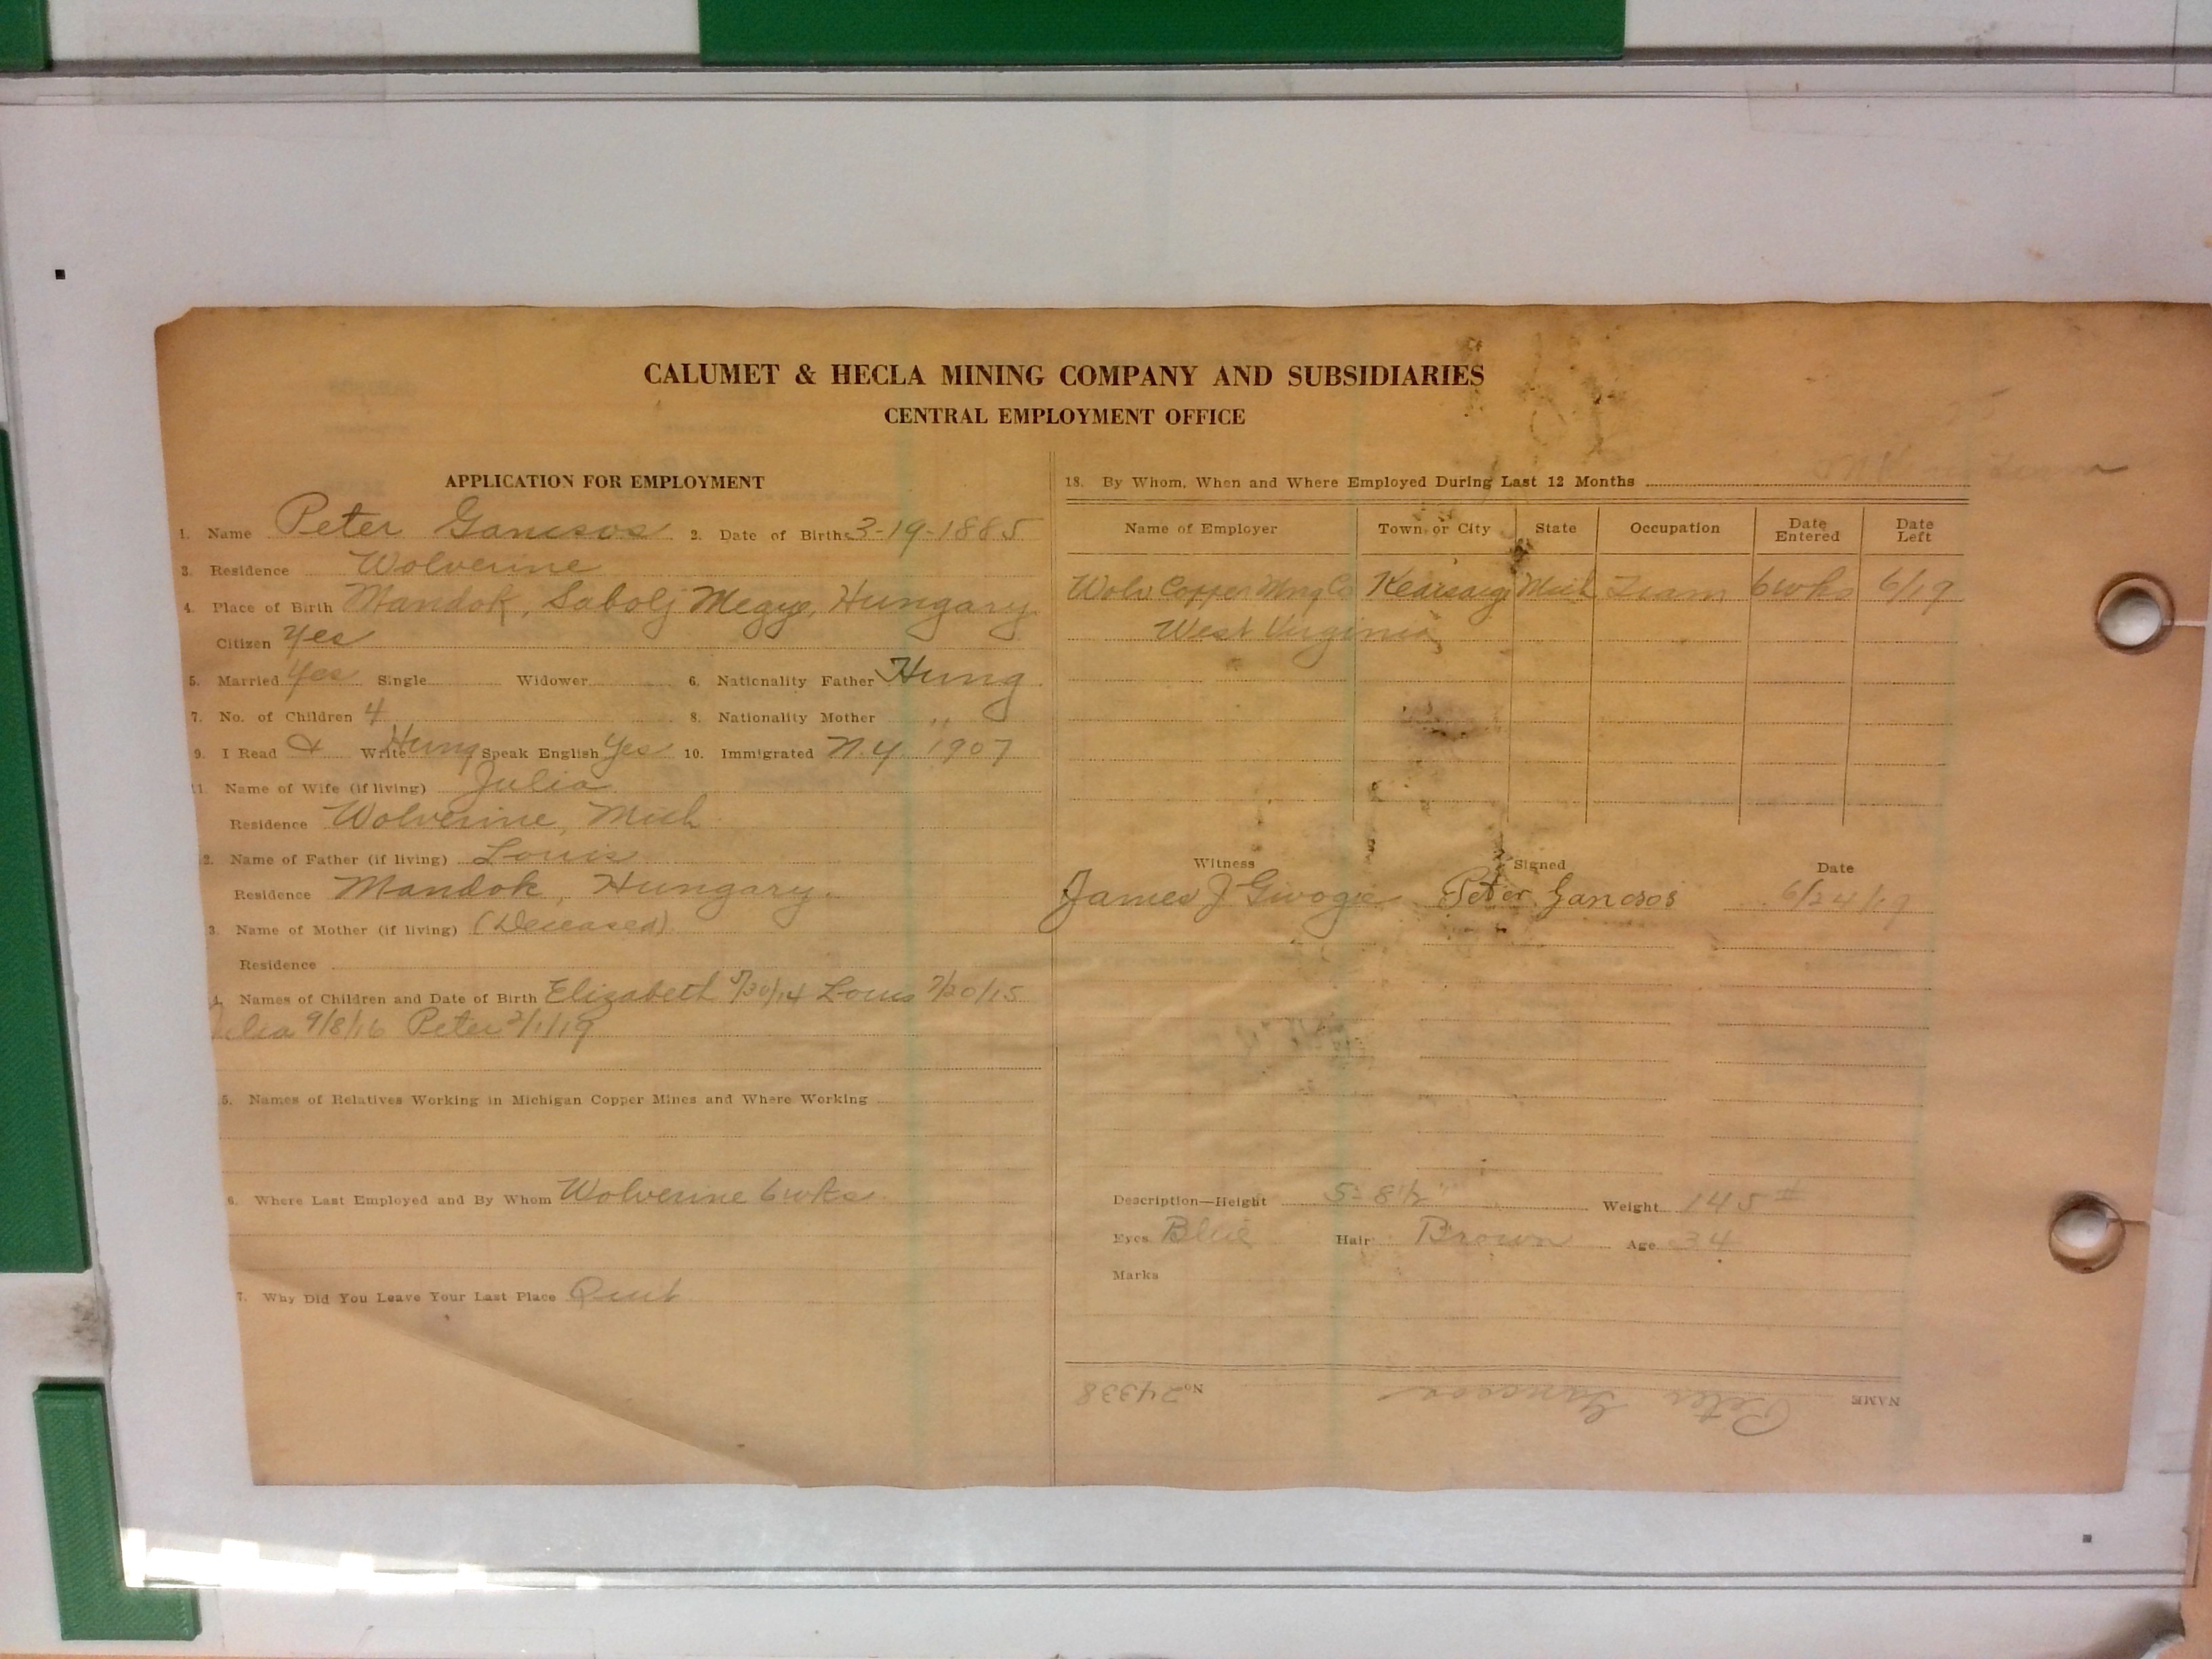 CALUMET & HECLA MINING COMPANY AND SUBSIDIARIES
CENTRAL EMPLOYMENT OFFICE
APPLICATION FOR EMPLOYMENT
1. Name Peter Gancsos 2. Date of Birth 3-19-1885
3. Residence Wolverine
4. Place of Birth Mandok, Sabolj Megye, Hungary
Citizen Yes
5. Married Yes Single Widower 6. Nationality Father Hung
7. No. of Children 4 8. Nationality Mother "
9. I Read & Write Hung Speak English Yes 10. Immigrated N.Y. 1907
11. Name of Wife (if living) Julia
Residence Wolverine, Mich
2. Name of Father (if living) Louis
Residence Mandok, Hungary.
3. Name of Mother (if living) (Deceased)
Residence
4. Names of Children and Date of Birth Elizabeth 5/30/14 Louis 7/20/15
Julia 9/8/16 Peter 2/1/19
5. Names of Relatives Working in Michigan Copper Mines and Where Working
6. Where Last Employed and By Whom Wolverine 6 wks
7. Why Did You Leave Your Last Place Quit
18. By Whom, When and Where Employed During Last 12 Months
Name of Employer Town or City State Occupation Date Entered Date Left
Wolv Copper Mng Co Kearsarge Mich Tram 6 wks 6/19
West Virginia
Witness Signed Date
James J Gwogie Peter Gancsos 6/24/19
Description—Height 5-8 1/2" Weight 145 #
Eyes Blue Hair Brown Age 34
Marks
NAME Peter Gancsos No. 24338